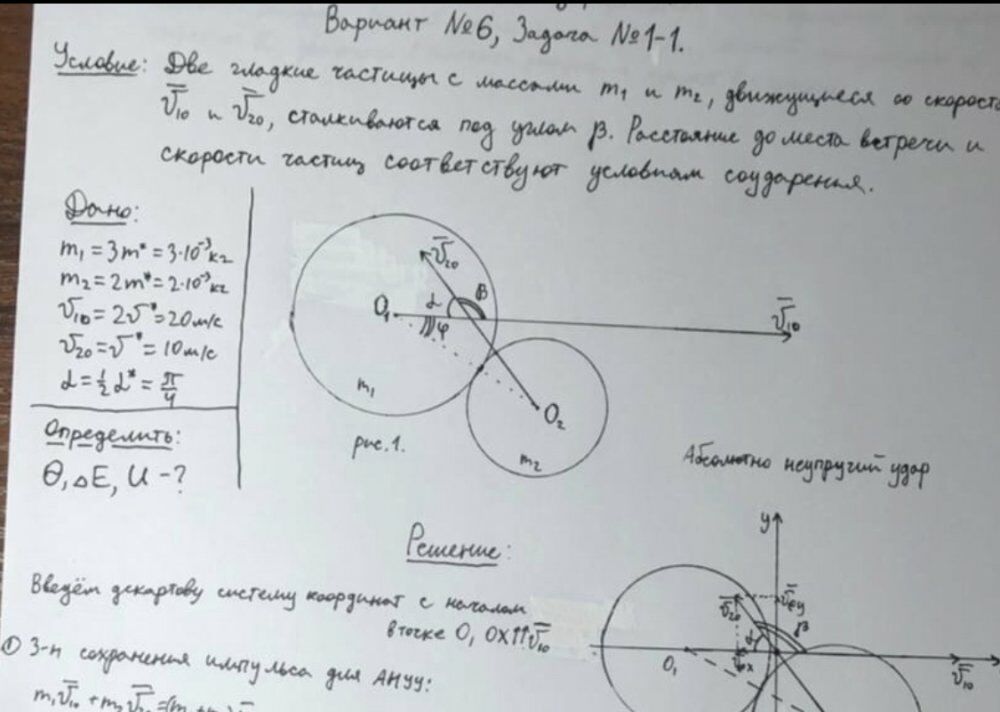 Вариант №6, Задача №1-1.
Условие: Две гладкие частицы с массами m₁ и m₂, движущиеся со скорост
v̅₁₀ и v̅₂₀, сталкиваются под углом β. Расстояние до места встречи и
скорости частиц соответствуют условиям соударения.
Дано:
m₁ = 3m* = 3·10⁻³ кг
m₂ = 2m* = 2·10⁻³ кг
v₁₀ = 2v* = 20 м/с
v₂₀ = v* = 10 м/с
α = ½ α* = π/4
Определить:
Θ, ΔE, U - ?
v̅₂₀
α
β
O₁
φ
v̅₁₀
m₁
O₂
m₂
рис. 1.
Абсолютно неупругий удар
Решение:
Введём декартову систему координат с началом
в точке O, OX↑↑v̅₁₀
① З-н сохранения импульса для АНУУ:
m₁v̅₁₀ + m₂v̅₂₀ =
y
v̅₂₀
β
α
O₁
v̅₁₀